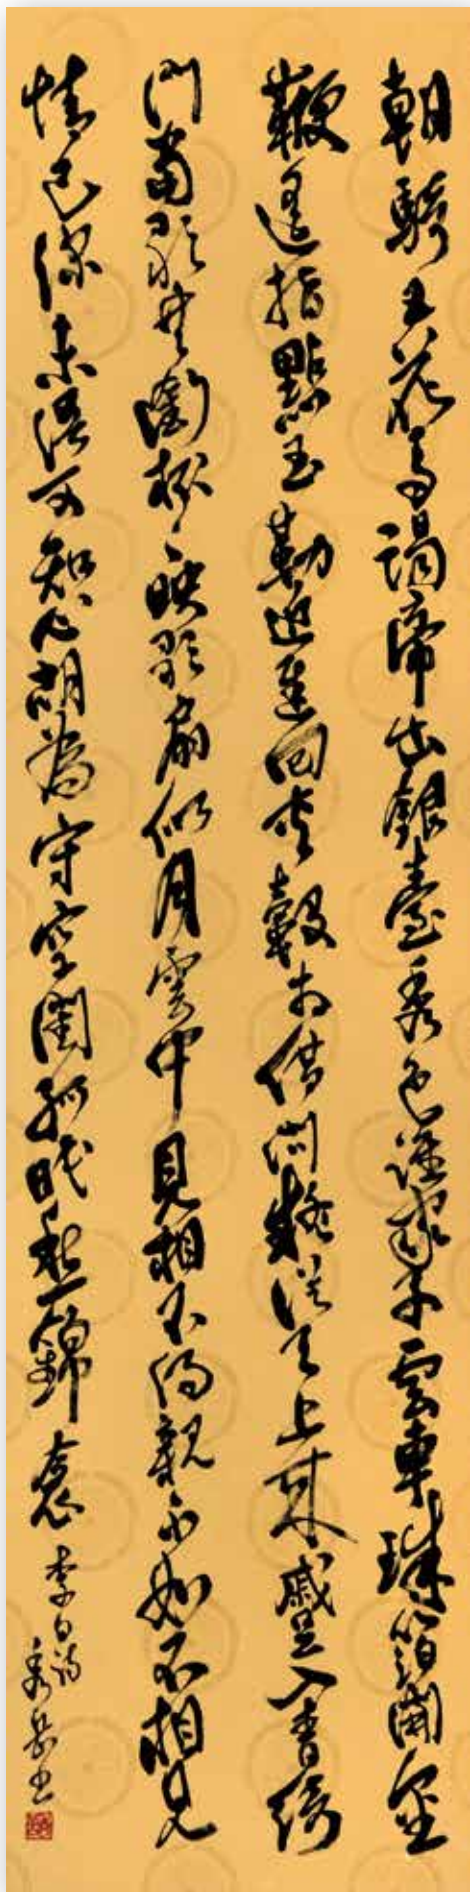 朝騎五花馬謁帝出銀臺秀色誰家子雲車珠箔開金
鞭遙指點玉勒遲遲回夾轂相借問疑從天上來蹙入青綺
門當歌共銜杯、映歌扇似月雲中見相不得親不如不相見
情已深未語可知心胡為守空閨孤眠愁錦衾
李白詩
秀岳書